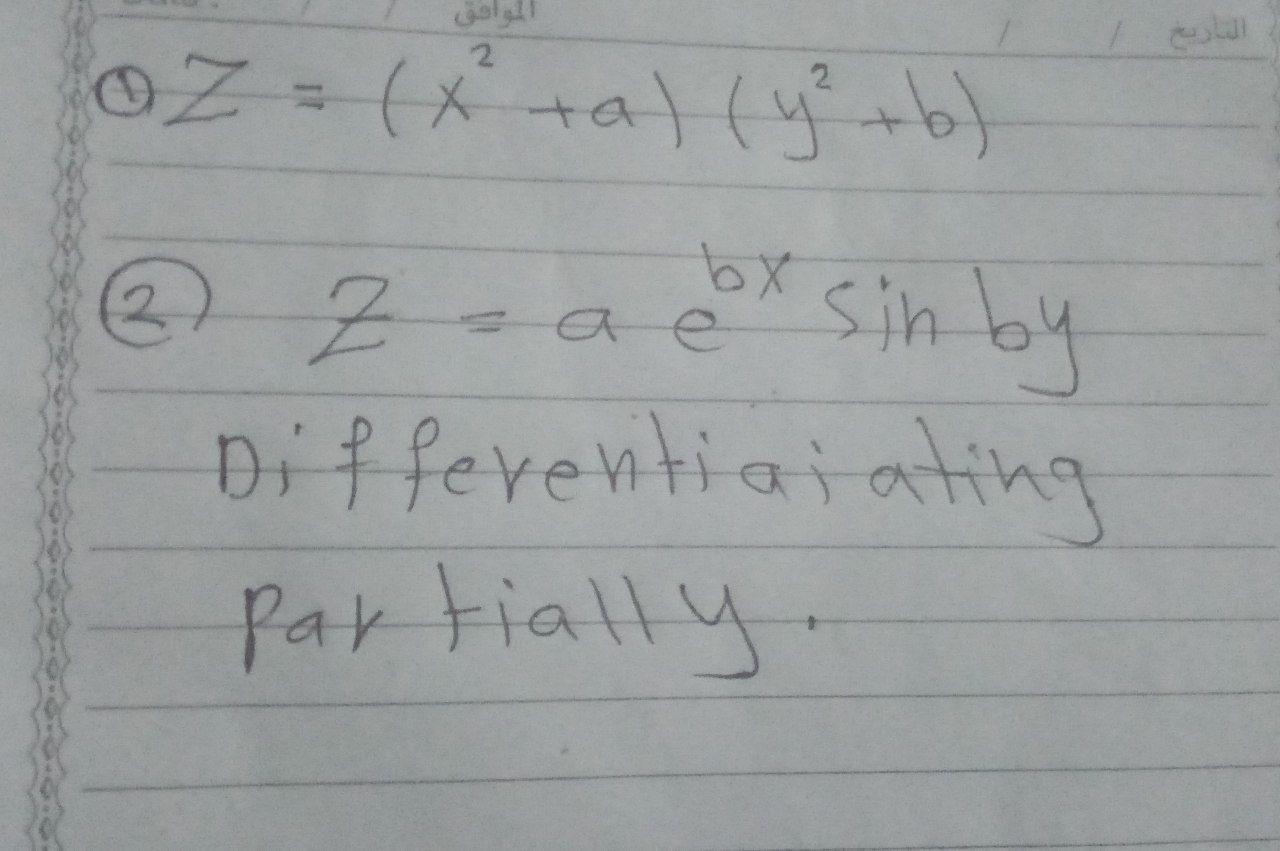 الموافق / / التاريخ
① Z = (x² + a) (y² + b)
② Z = a e^{bx} sin by
Differentiaiating
Partially.